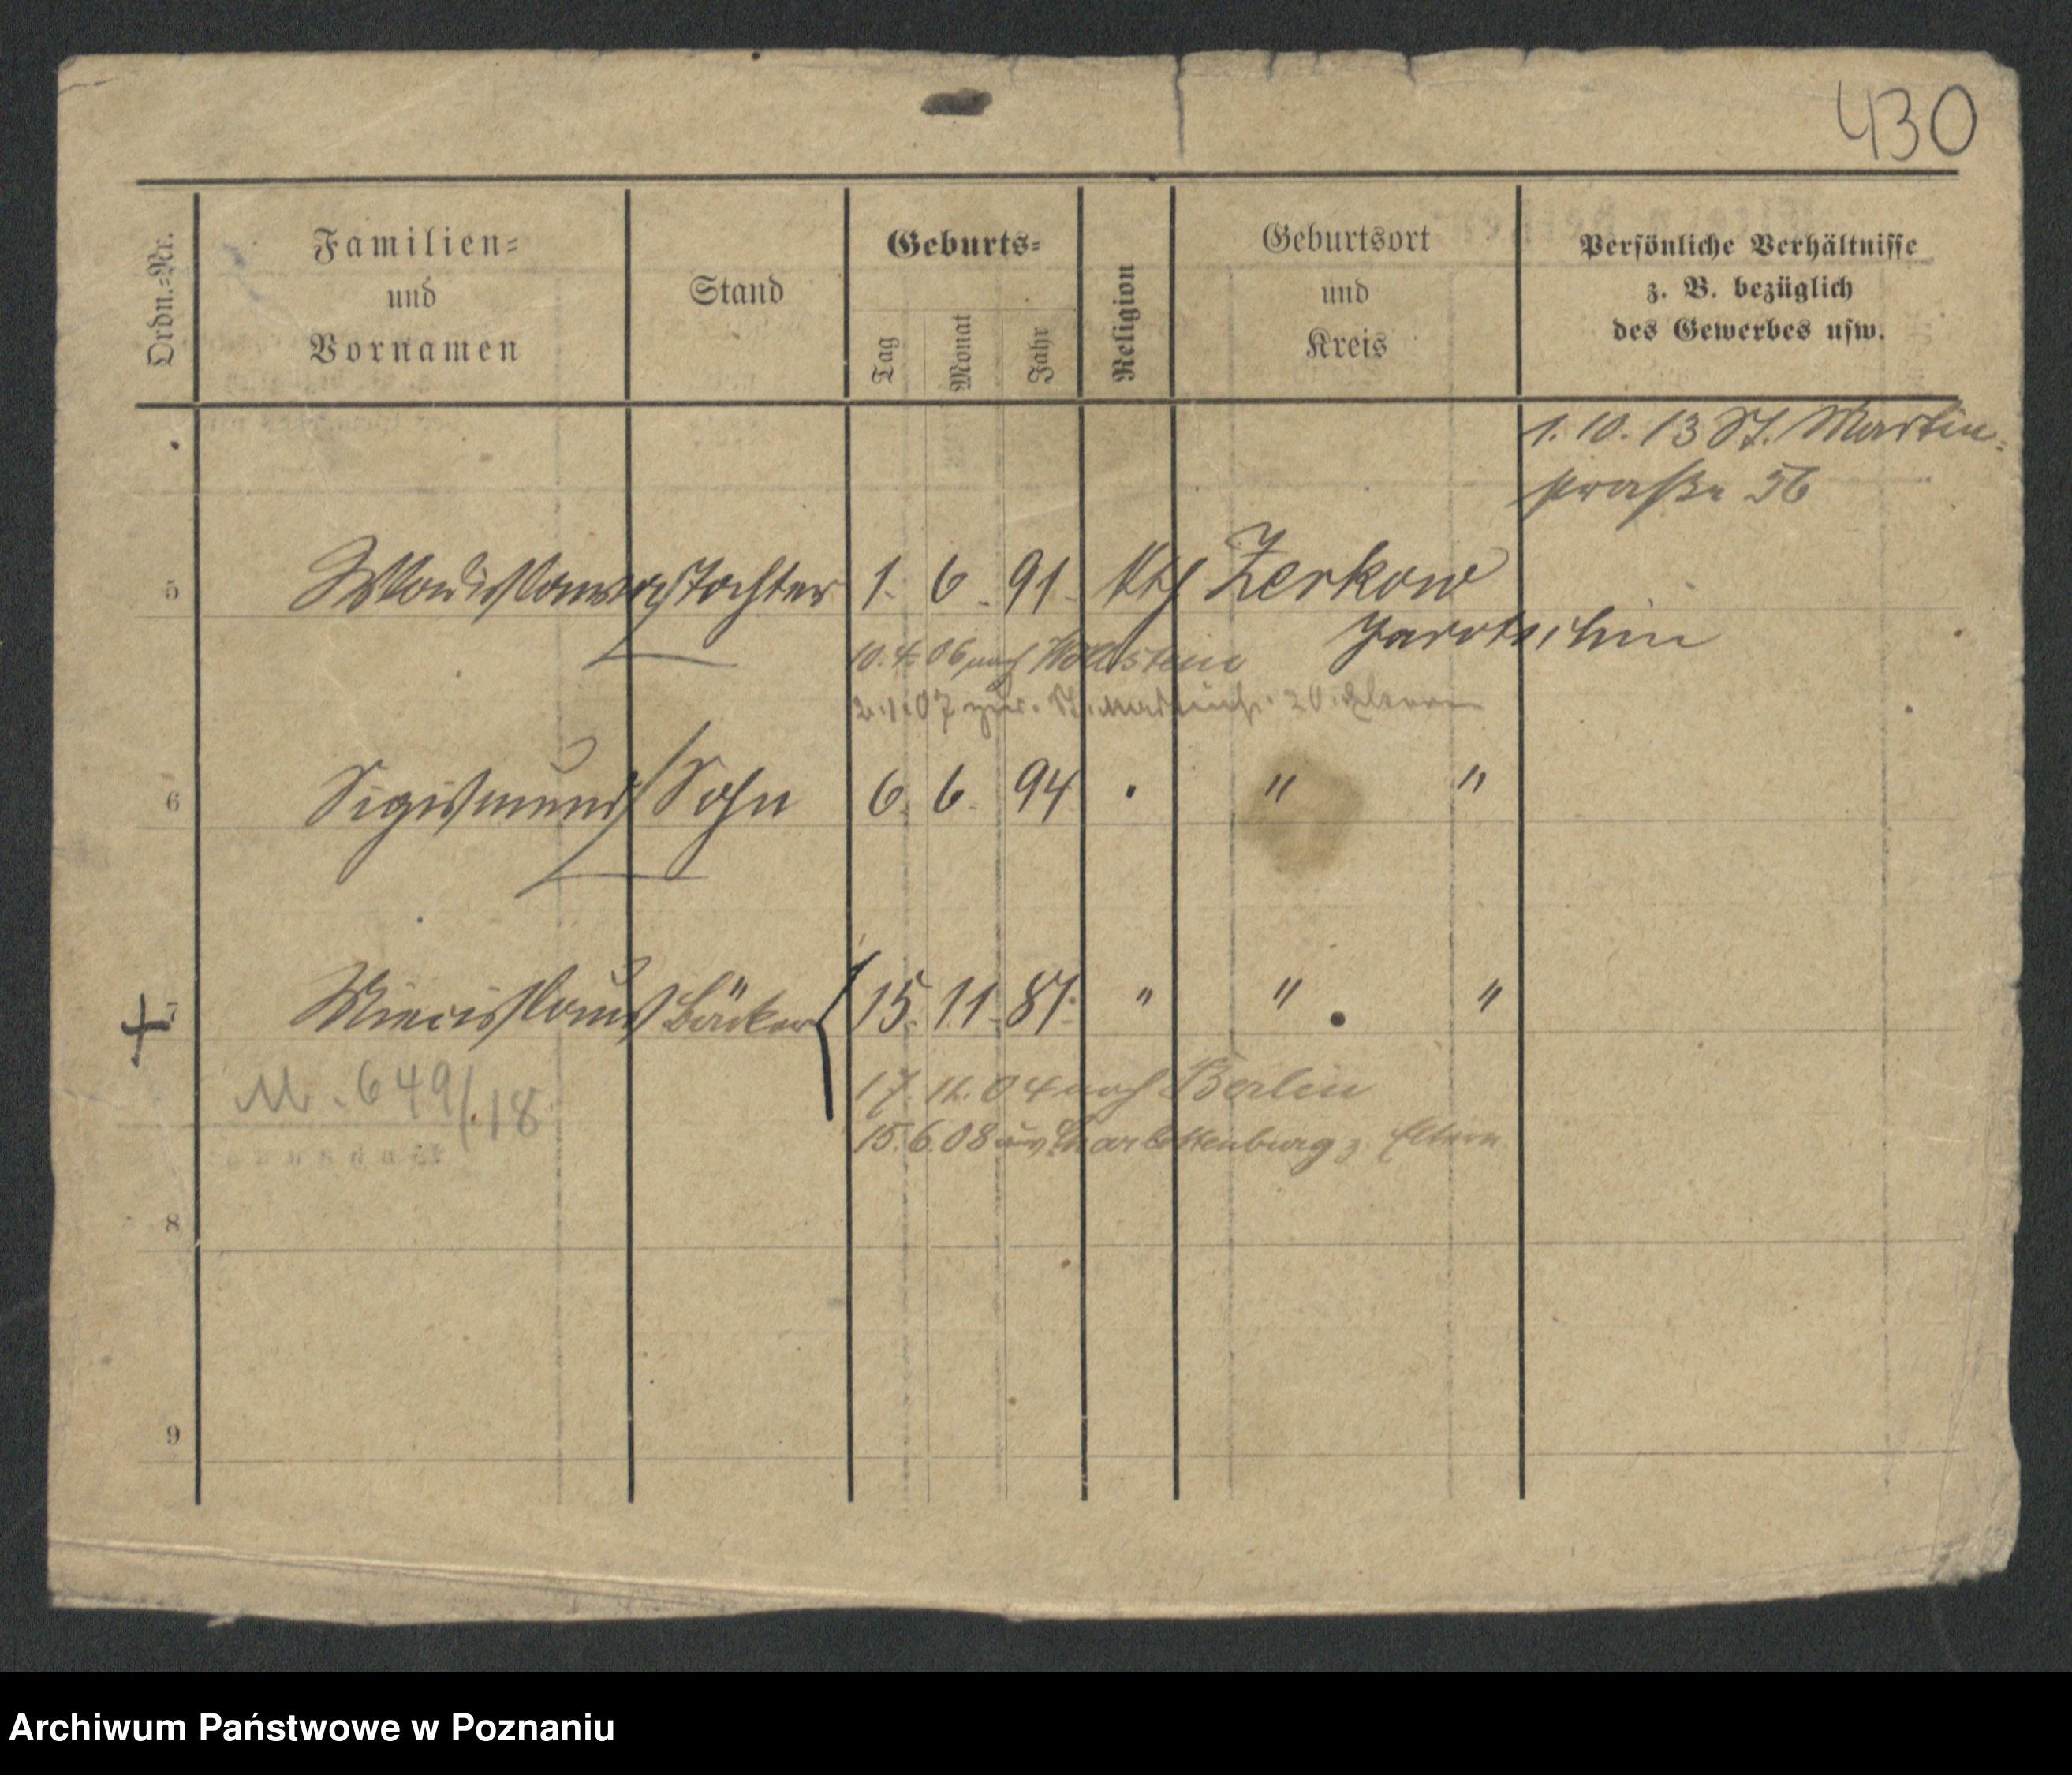 430
Ordn.-Nr.
Familien-
und
Vornamen
Stand
Geburts-
Tag
Monat
Jahr
Religion
Geburtsort
und
Kreis
Persönliche Verhältnisse
z. B. bezüglich
des Gewerbes usw.
1. 10. 13 St. Martin-
straße 56
5 Tochter 1. 6. 91. kth Zerkow
Jarotschin
10. 4. 06 nach Wollstein
2. 1. 07 20. Eltern
6 Sigismund Sohn 6. 6. 94 " "
7 Miecislaus Bäcker 15. 11. 87. " " "
M. 649/18
17. 11. 04 nach Berlin
15. 6. 08 aus Charlottenburg z. Eltern
8
9
Archiwum Państwowe w Poznaniu